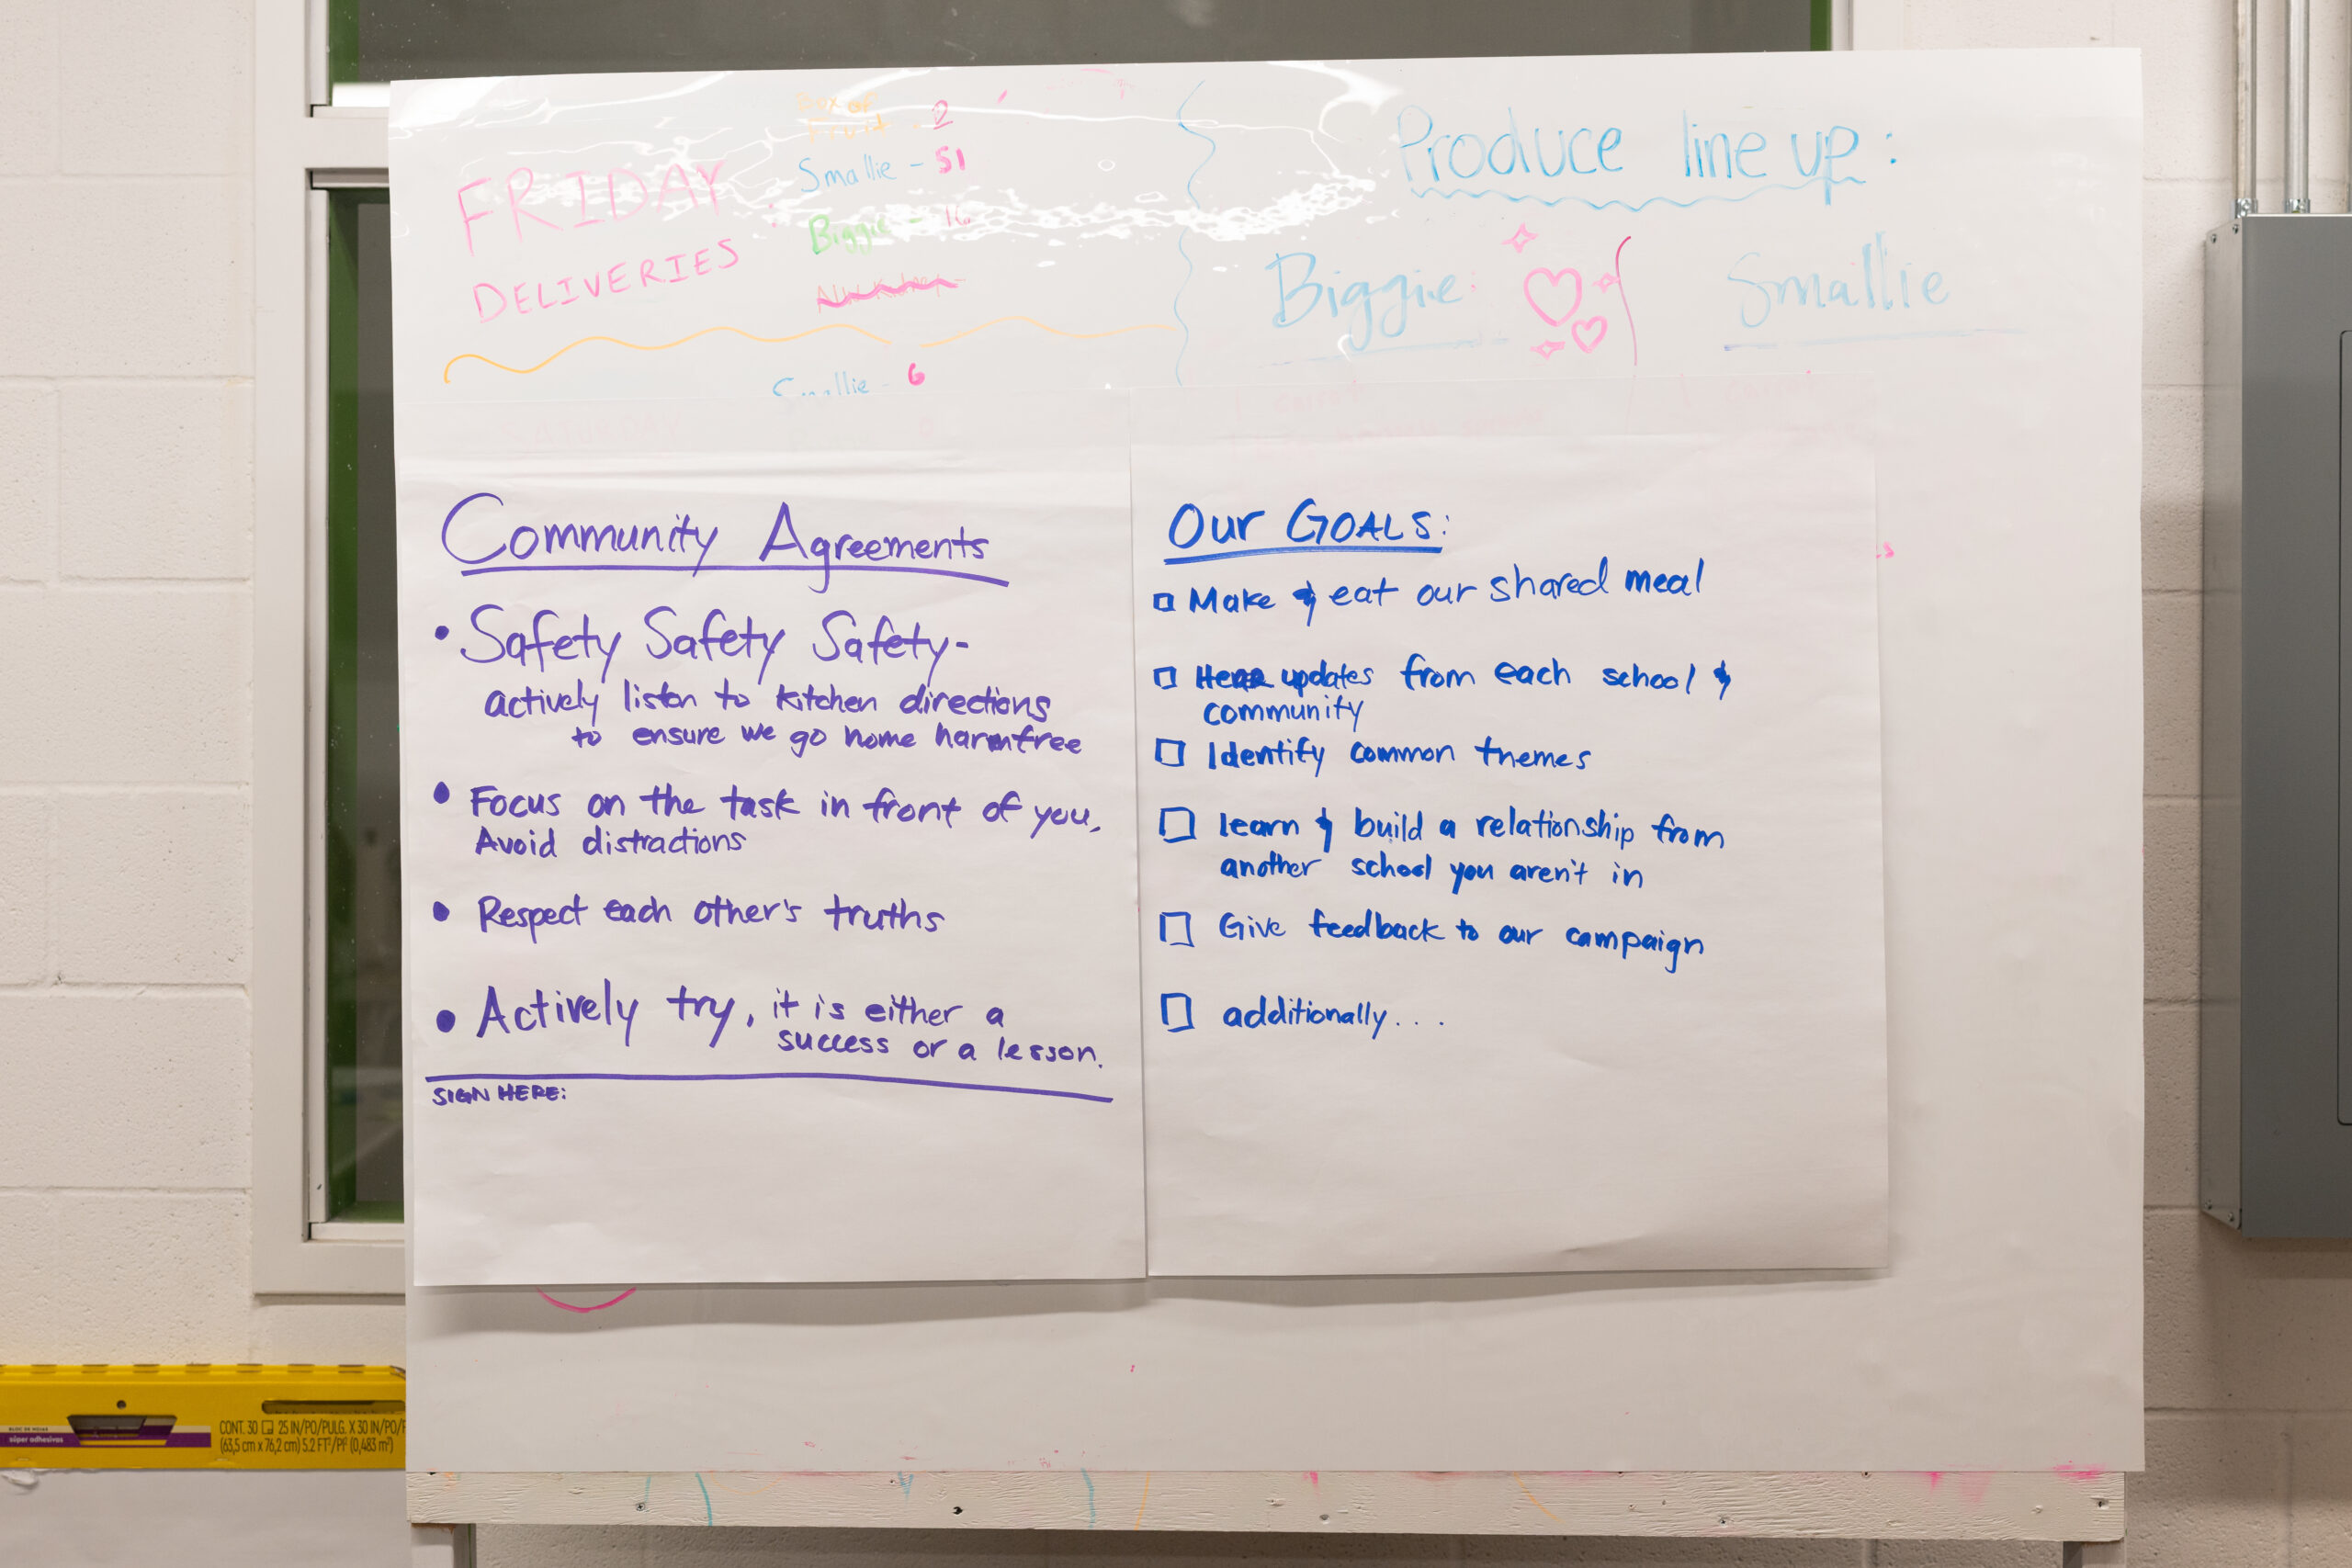 Box of
Fruit - 2
FRIDAY
DELIVERIES :
Smallie - 51
Biggie - 16
Smallie - 6
Produce line up :
Biggie:
Smallie
Community Agreements
• Safety Safety Safety -
actively listen to kitchen directions
to ensure we go home harmfree
• Focus on the task in front of you,
Avoid distractions
• Respect each other's truths
• Actively try, it is either a
success or a lesson.
SIGN HERE:
Our GOALS:
□ Make & eat our shared meal
□ Hear updates from each school &
community
□ Identify common themes
□ learn & build a relationship from
another school you aren't in
□ Give feedback to our campaign
□ additionally...
BLOC DE HOJAS
súper adhesivas
CONT. 30 25 IN/PO/PULG. X 30 IN/PO/
(63,5 cm x 76,2 cm) 5.2 FT²/PI² (0,483 m²)